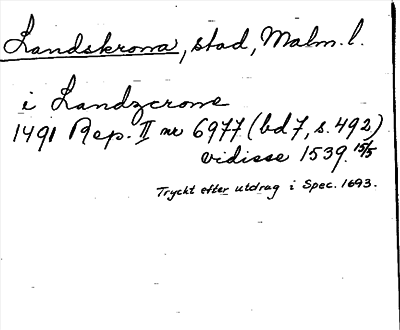 Landskrona, stad, Malm. l.
i Landzcrone
1491 Rep. II nr 6977 (bd 7, s. 492)
vidisse 1539. 15/5
Tryckt efter utdrag i Spec. 1693.